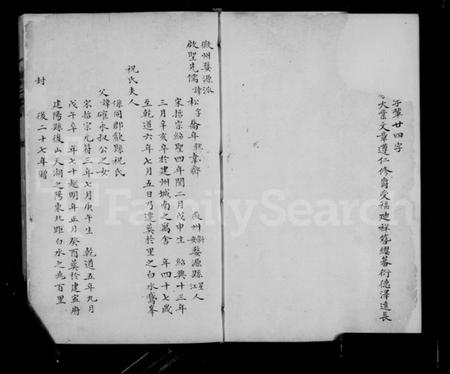 字輩廿四字
火登文章遵仁修爵受福建祥簪纓蕃衍德澤遠長
徽州婺源派
啟聖先儒諱松字喬年號韋齋
徽州婺源縣
人
宋哲宗紹聖四年閏二月戊申生 紹興十三年
三月辛亥卒於建州城南之寓舍 年四十七歲
至乾道六年七月五日乃遷葬於里之白水鵞峯
祝氏夫人
係同郡歙縣祝氏
父諱確永叔公之女
宋哲宗元符三年七月庚午生 乾道五年九月
戊午卒 年七十越明年正月癸酉葬於建寧府
建陽縣後山天湖之陽東北距白水之兆百里
封
後二十七年贈
FamilySearch